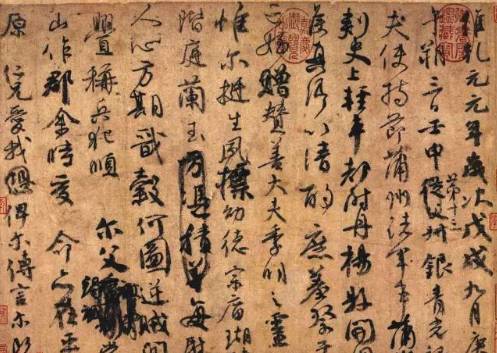 維乾元元年歲次戊戌九月庚
午朔三日壬申第十三從父叔銀青光
夫使持節蒲州諸軍事蒲
刺史上輕車都尉丹楊縣開國
侯真卿以清酌庶羞祭于
亡姪贈贊善大夫季明之靈
惟爾挺生夙標幼德宗廟瑚
階庭蘭玉方憑積善每慰
人心方期戩穀何圖逆賊閒
釁稱兵犯順 爾父 常
山作郡余時受 命亦在平
原 仁兄愛我俾爾傳言爾既